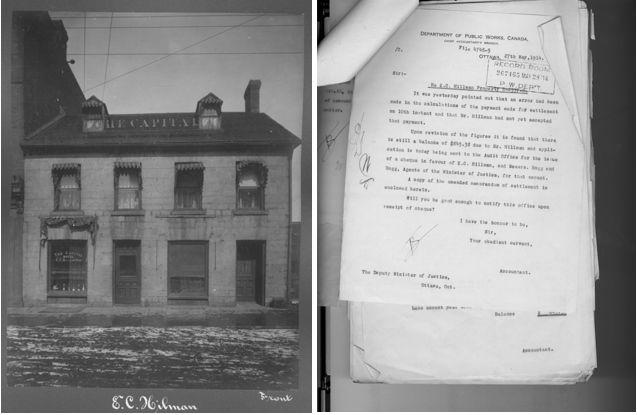 THE CAPITAL
E.C. Hilman
Front
DEPARTMENT OF PUBLIC WORKS, CANADA.
CHIEF ACCOUNTANT'S BRANCH.
OTTAWA, 27th May, 1914.
RECORD ROOM
P.W. DEP'T.
Sir:-
It was yesterday pointed out that an error had been
made in the calculations of the payment made for settlement
on 10th instant and that Mr. Hillman had not yet accepted
that payment.
Upon revision of the figures it is found that there
is still a balance of due to Mr. Hillman and appli-
cation is today being sent to the Audit Office for the issue
of a cheque in favour of E.C. Hillman, and Messrs. Hogg and
Hogg, Agents of the Minister of Justice, for that amount.
A copy of the amended memorandum of settlement is
enclosed herein.
Will you be good enough to notify this office upon
receipt of cheque?
I have the honour to be,
Sir,
Your obedient servant,
Accountant.
The Deputy Minister of Justice,
Ottawa, Ont.
Balance
Accountant.